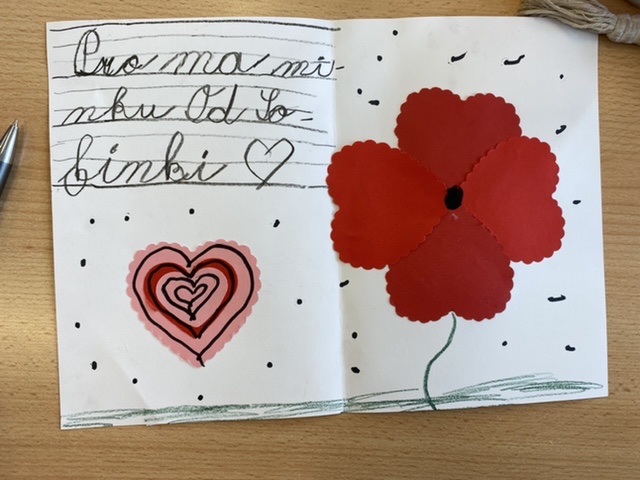 Pro ma mi-
nku Od So-
finki ♡